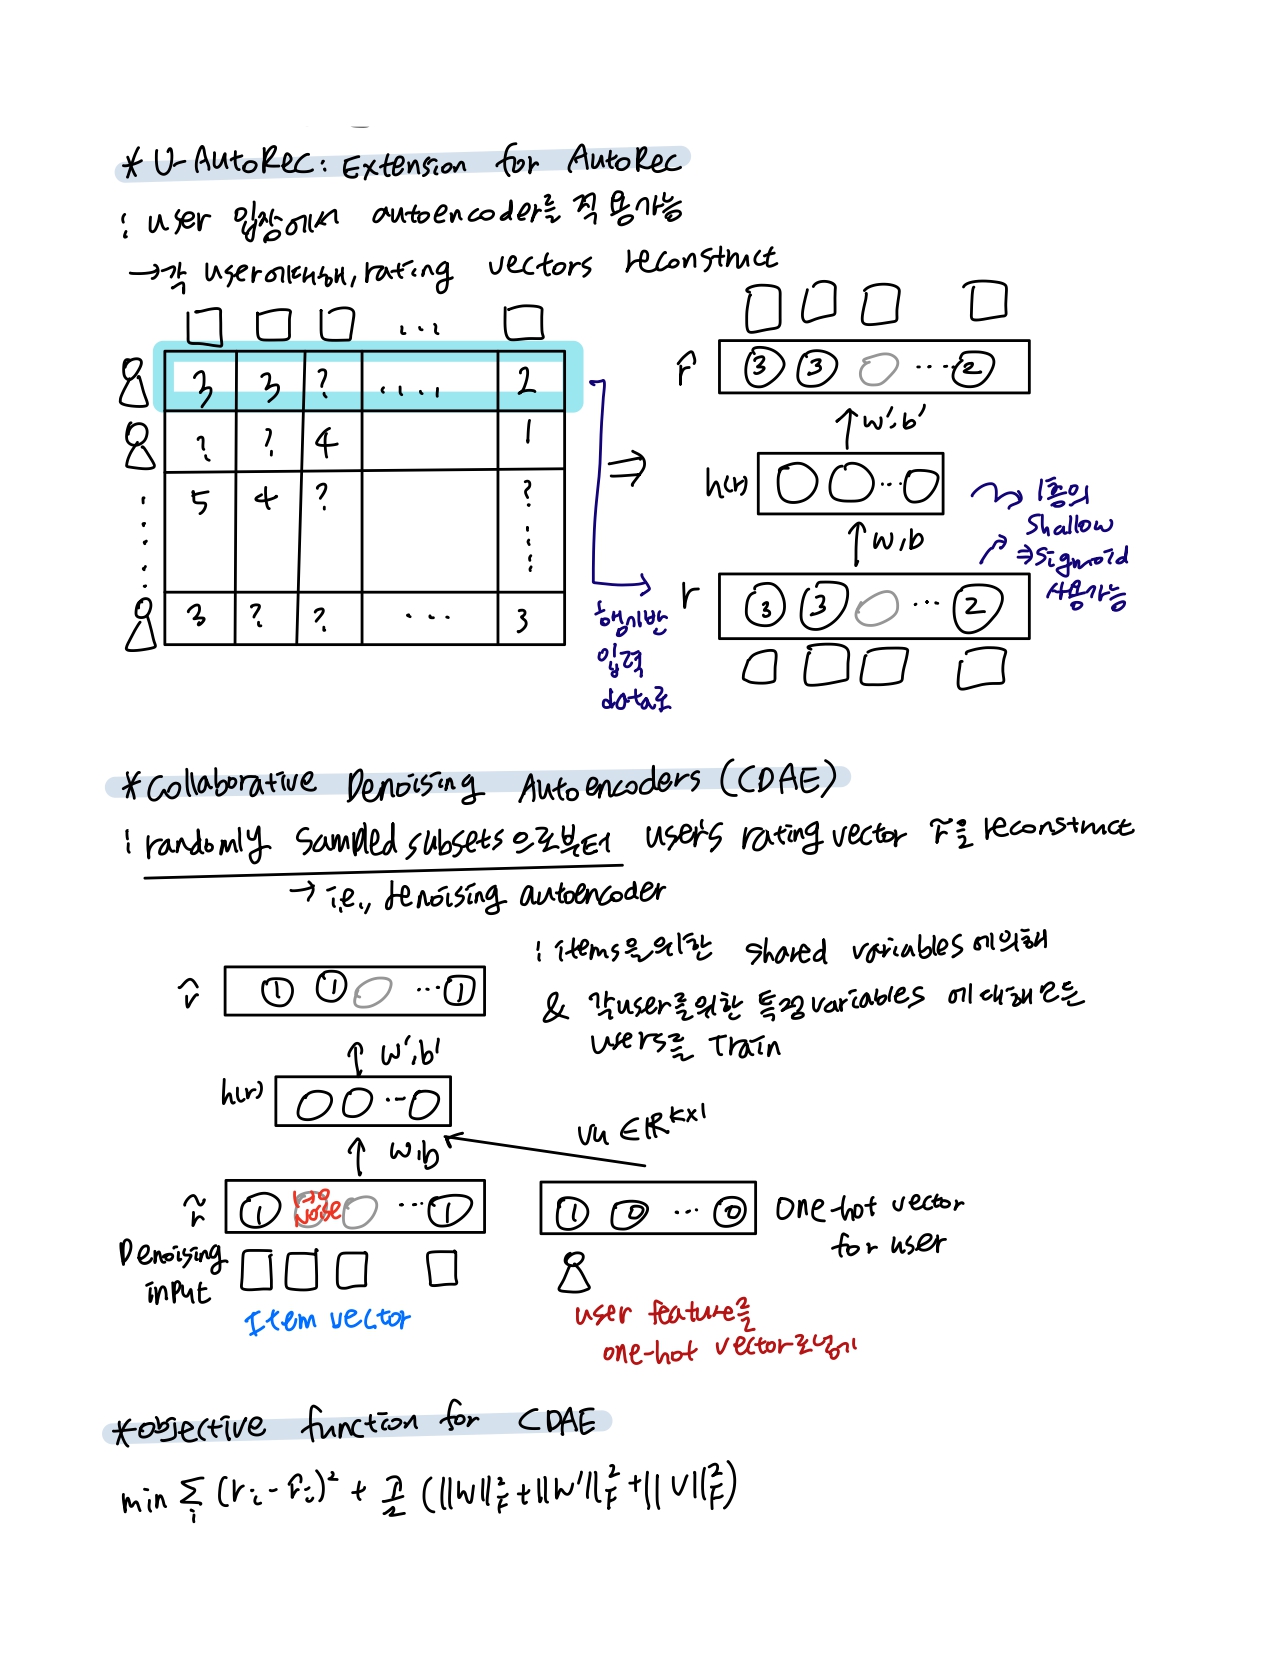 * U-AutoRec: Extension for AutoRec
: user 입장에서 autoencoder를 적용가능
→각 user에대해, rating vectors reconstruct
...
3 3 ? .... 2
? ? 4 1
5 4 ? ?
3 ? ? ... 3
⇒
행기반
입력
data로
r̂ 3 3 ... 2
↑ w', b'
h(r) ...
↑ w, b
r 3 3 ... 2
1층의
shallow
⇒ sigmoid
사용가능
* Collaborative Denoising Autoencoders (CDAE)
: randomly sampled subsets으로부터 user's rating vector r̃을 reconstruct
→ i.e., denoising autoencoder
: items을위한 shared variables에의해
& 각user를위한 특정variables 에대해 모든
users를 Train
r̂ 1 1 ... 1
↑ w', b'
h(r) ...
↑ w, b
Vu ∈ ℝ^{K×1}
r̃ 1 1→0 Noise ... 1
Denoising
input
Item vector
1 0 ... 0
One-hot vector
for user
user feature를
one-hot vector로넘기
* objective function for CDAE
min Σ_i (r_i - r̂_i)² + λ/2 (||W||²_F + ||W'||²_F + ||V||²_F)